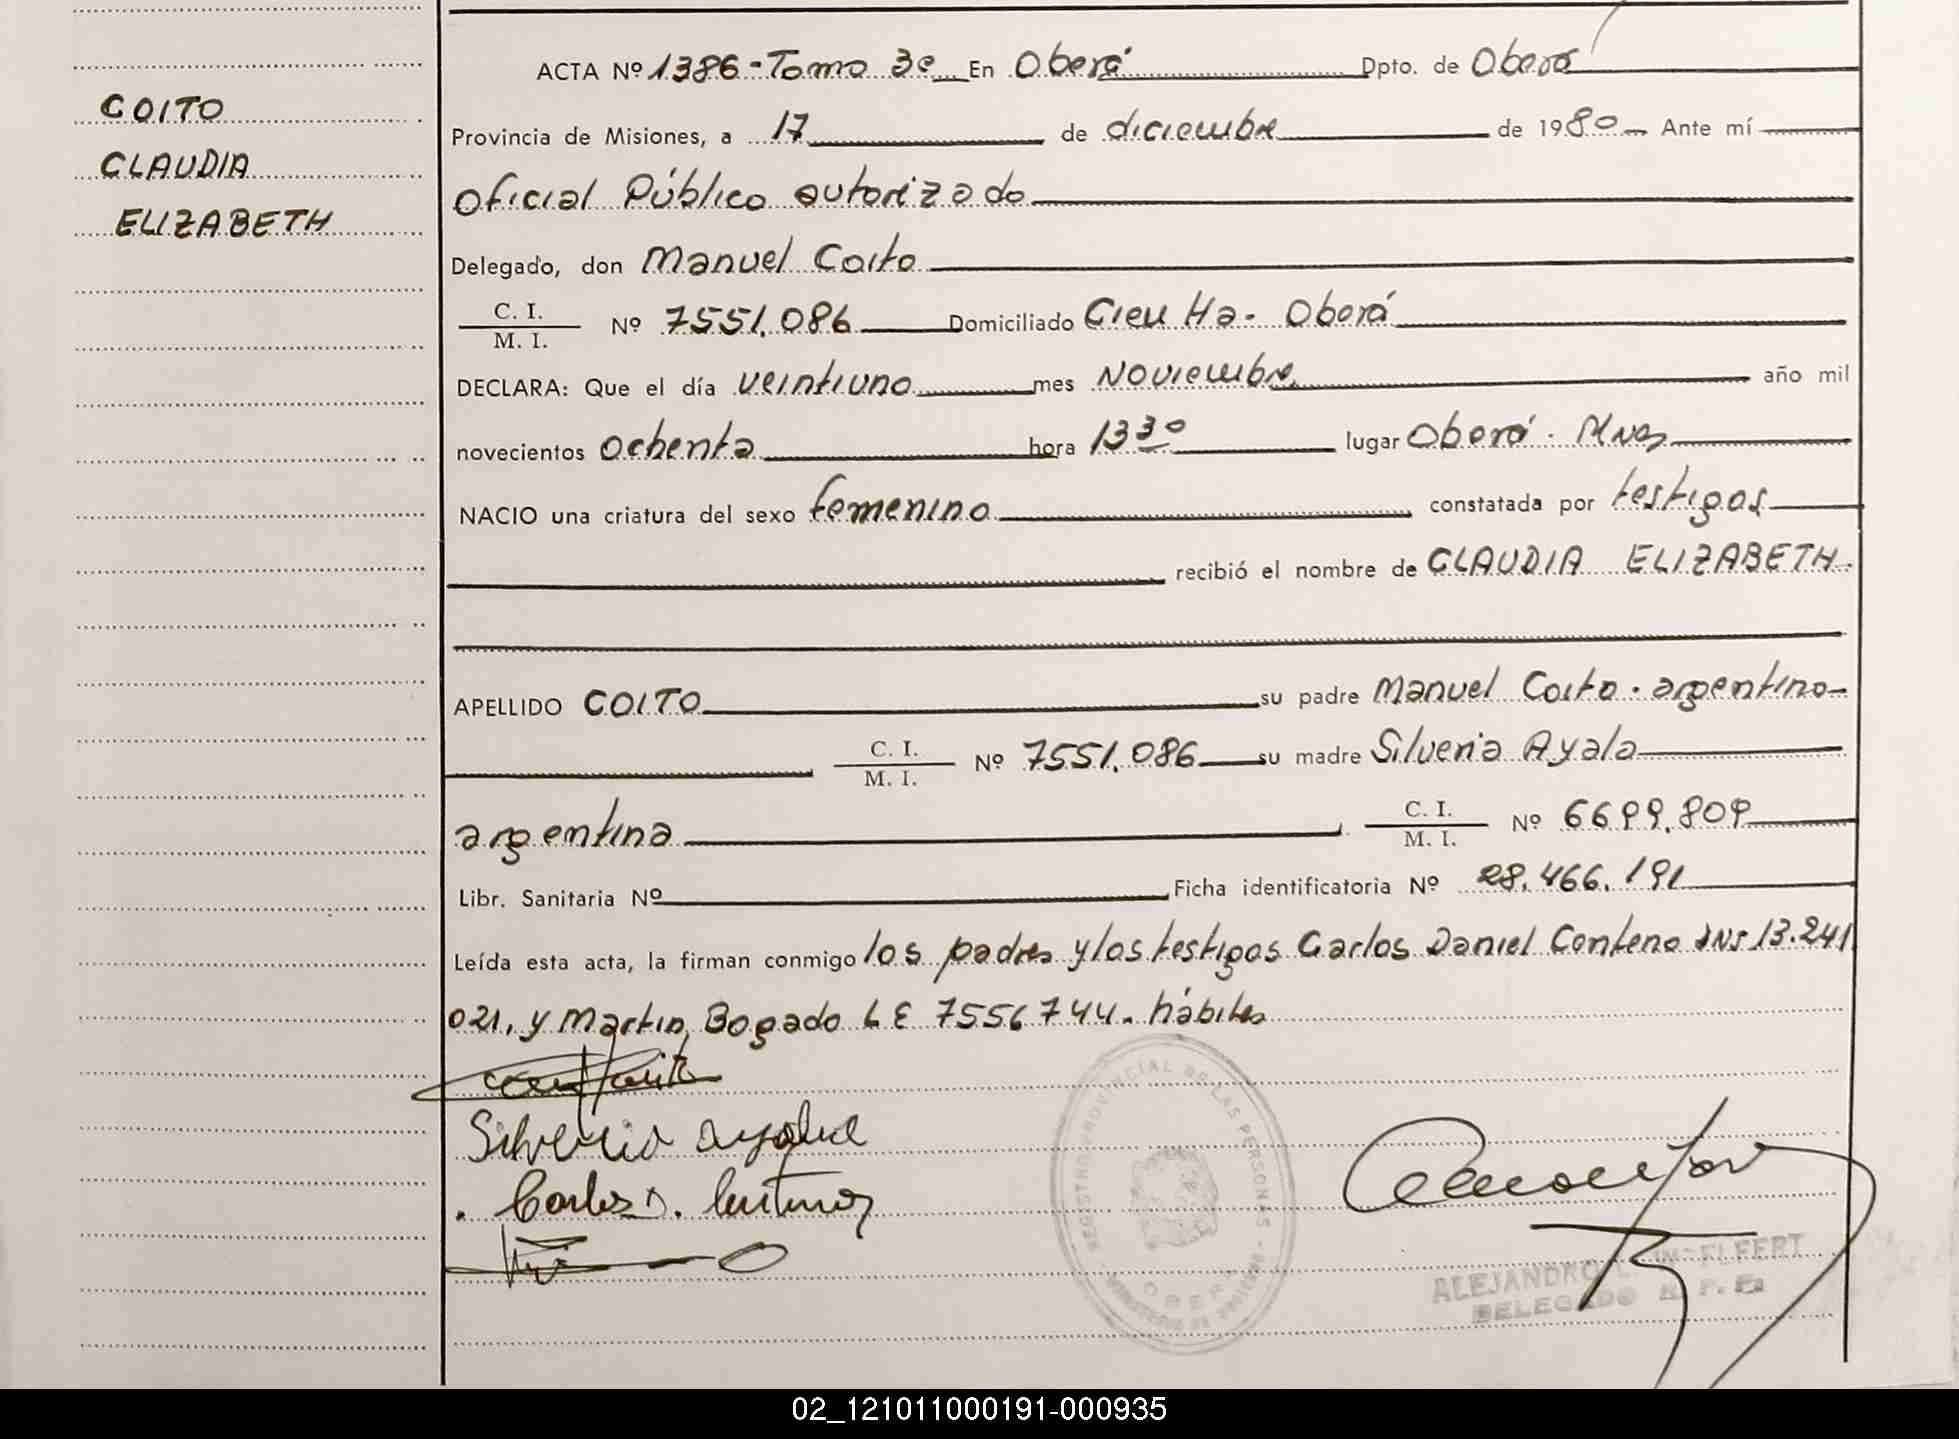 COITO
CLAUDIA
ELIZABETH
ACTA Nº 1386 - Tomo 3º En Oberá Dpto. de Oberá
Provincia de Misiones, a 17 de diciembre de 1980 Ante mí
Oficial Público autorizado
Delegado, don Manuel Coito
C. I.
M. I. Nº 7551.086 Domiciliado Cien Ha. Oberá
DECLARA: Que el día veintiuno mes Noviembre año mil
novecientos ochenta hora 13 30 lugar Oberá. Mnes
NACIO una criatura del sexo femenino constatada por testigos
recibió el nombre de CLAUDIA ELIZABETH
APELLIDO COITO su padre Manuel Coito. argentino
C. I.
M. I. Nº 7551.086 su madre Silveria Ayala
argentina C. I.
M. I. Nº 6699.809
Libr. Sanitaria Nº Ficha identificatoria Nº 28.466.191
Leída esta acta, la firman conmigo los padres y los testigos Carlos Daniel Centeno DNI 13.241
021, y Martin Bogado L E 7556744. hábiles
Silveria ayala
Carlos D.
REGISTRO PROVINCIAL DE LAS PERSONAS
OBERA
ALEJANDRO
DELEGADO R. P.
02_121011000191-000935